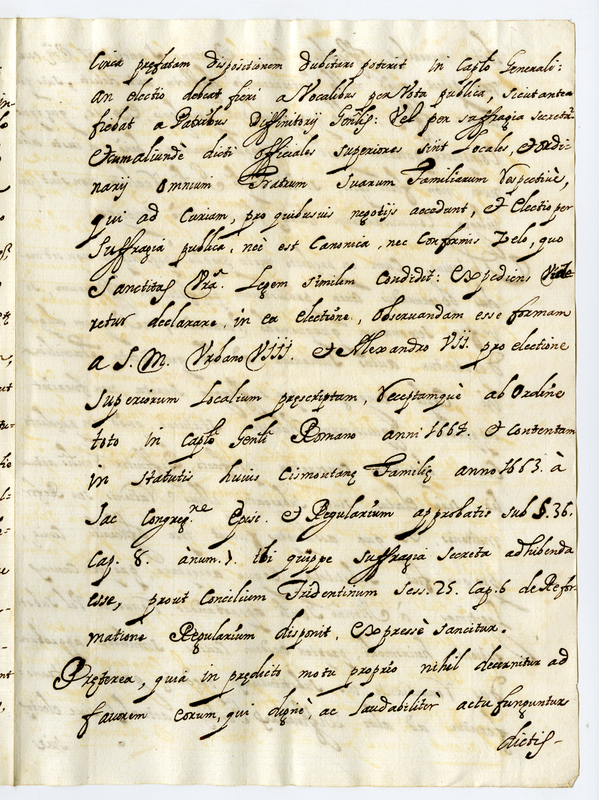 Circa pręfatam dispositionem dubitari poterit in Capłō Generali:
an electio debeat fieri a Vocalibus per Vota publica, sicut antea
fiebat a Patribus Diffinitorij Gen̄lis: Vel per suffragia secreta:
Et cum aliundè dicti officiales superiores sint Locales, et ordi-
narij omnium Fratrum suarum Familiarum respectiuè,
qui ad Curiam, pro quibusuis negotijs accedunt, et Electio per
suffragia publica, nec est Canonica, nec Conformis Zelo, quo
Sanctitas Vr̄a Legem similem condidit: Expediens vide
retur declarare, in ea electiōne, obseruandam esse formam
a S. M. Vrbano VIII. et Alexandro VII. pro electione
Superiorum Localium pręscriptam, receptamquè ab Ordine
toto in Capłō Gen̄li Romano anni 1664. et contentam
in statutis huius Cismontanę Familię anno 1663. à
Sac. Congreg.ne Episc. et Regularium approbatis sub §. 36.
Cap. 8. à num. 7. ibi quippe suffragia secreta adhibenda
esse, prout Concilium Tridentinum Sess. 25. Cap. 6 de Refor-
matione Regularium disponit, expressè sancitur.
Pręterea, quia in prędicto motu proprio nihil decernitur ad
fauorem eorum, qui dignè, ac laudabilitèr actu funguntur
dictis-